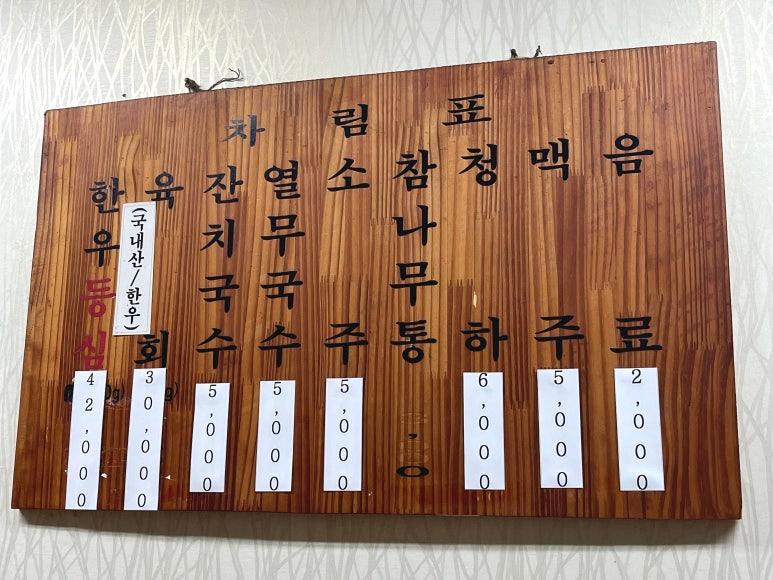 차림표
한우등심 42,000
육회 (국내산/한우) 30,000
잔치국수 5,000
열무국수 5,000
소주 5,000
참나무통
청하 6,000
맥주 5,000
음료 2,000